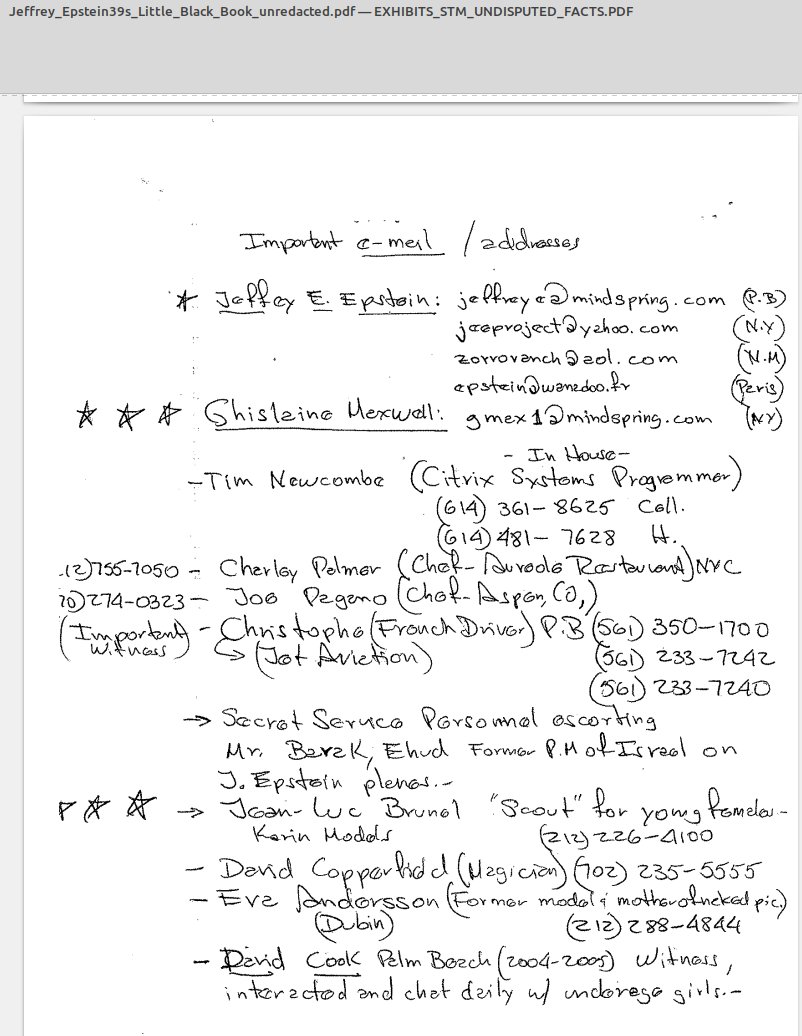 Jeffrey_Epstein39s_Little_Black_Book_unredacted.pdf — EXHIBITS_STM_UNDISPUTED_FACTS.PDF
Important e-mail / addresses
★ Jeffrey E. Epstein: jeffreye@mindspring.com (P.B)
jeeproject@yahoo.com (N.Y)
zorroranch@aol.com (N.M)
epstein@wanadoo.fr (Paris)
★ ★ ★ Ghislaine Maxwell: gmax1@mindspring.com (NY)
- In House -
- Tim Newcombe (Citrix Systems Programmer)
(614) 361-8625 Cell.
(614) 481-7628 H.
12)755-7050 - Charley Palmer (Chef- Aureole Restaurant) NYC
70)274-0323 - Joe Pagano (Chef- Aspen, CO,)
(Important Witness) - Christophe (French Driver) P.B (561) 350-1700
↳ (Jet Aviation) (561) 233-7242
(561) 233-7240
→ Secret Service Personnal escorting
Mr. Barak, Ehud Former P.M of Israel on
J. Epstein planes.-
★ ★ ★ → Jean-Luc Brunel "Scout" for young females-
Karin Models (212) 226-4100
- David Copperfield (Magician) (702) 235-5555
- Eva Andersson (Former model & mother of naked pic.)
(Dubin) (212) 288-4844
- David Cook Palm Beach (2004-2005) Witness,
interacted and chat daily w/ underage girls.-